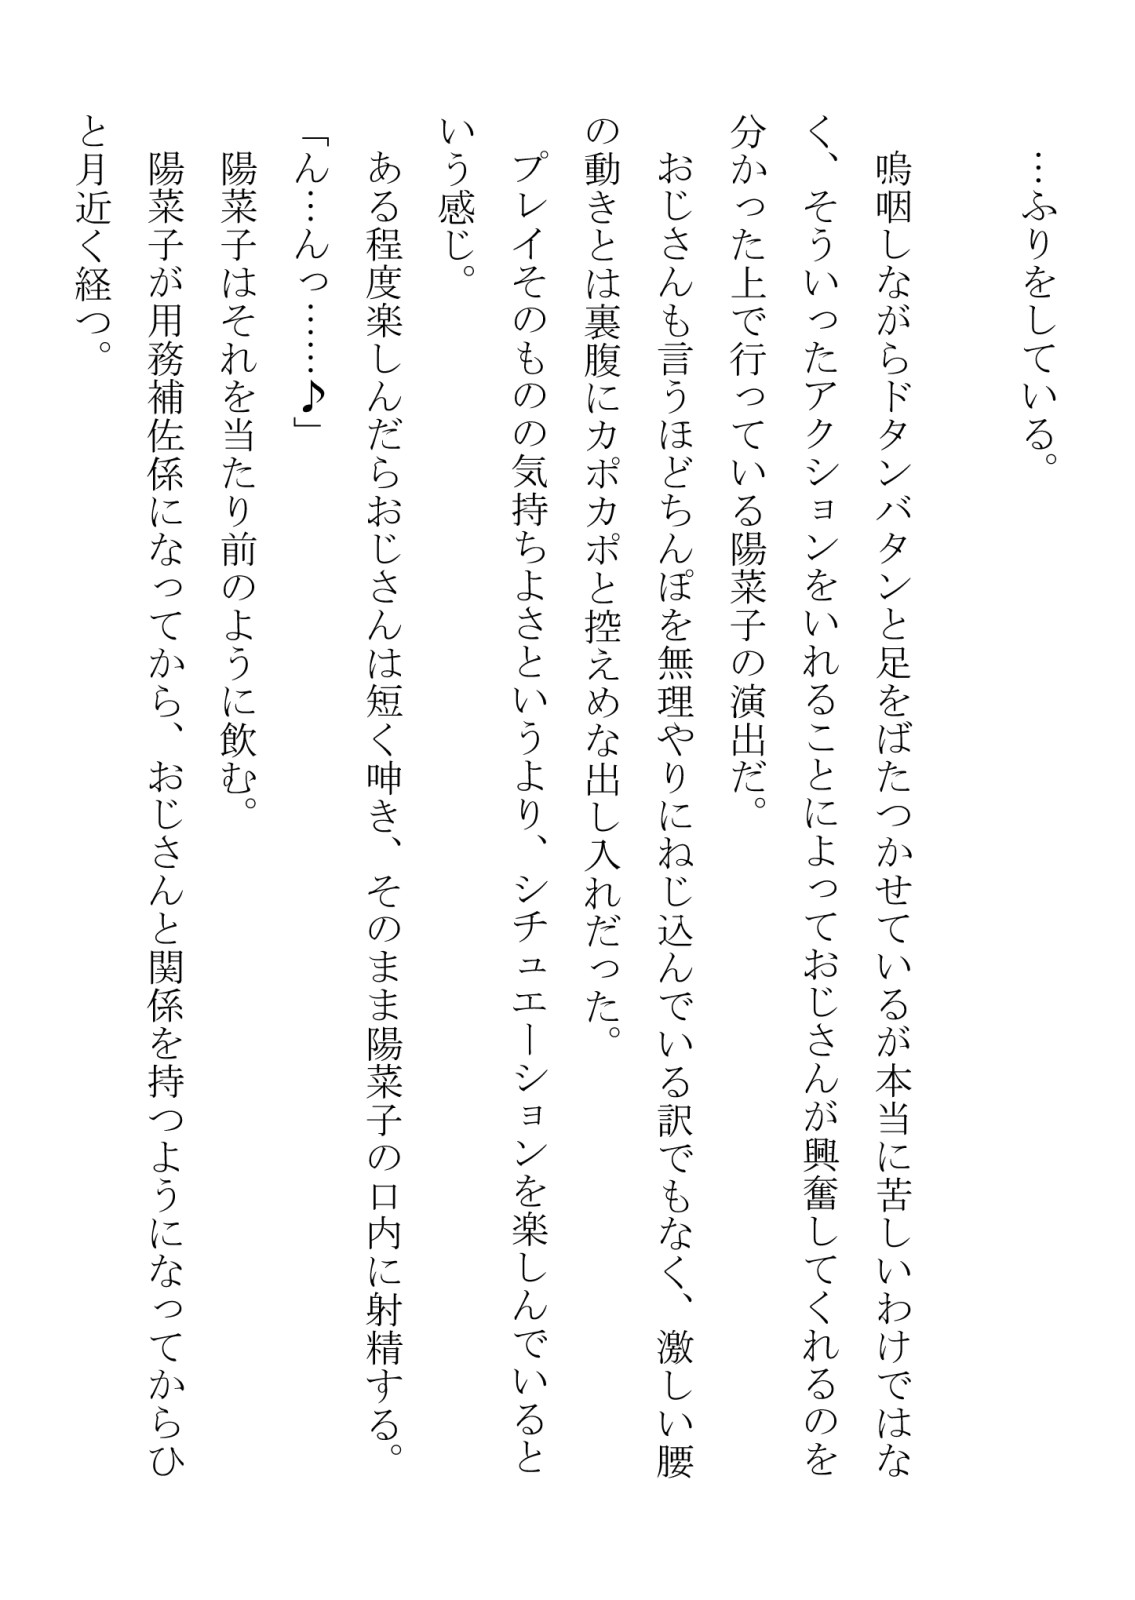 …ふりをしている。
嗚咽しながらドタンバタンと足をばたつかせているが本当に苦しいわけではな
く、そういったアクションをいれることによっておじさんが興奮してくれるのを
分かった上で行っている陽菜子の演出だ。
おじさんも言うほどちんぽを無理やりにねじ込んでいる訳でもなく、激しい腰
の動きとは裏腹にカポカポと控えめな出し入れだった。
プレイそのものの気持ちよさというより、シチュエーションを楽しんでいると
いう感じ。
ある程度楽しんだらおじさんは短く呻き、そのまま陽菜子の口内に射精する。
「ん…んっ……♪」
陽菜子はそれを当たり前のように飲む。
陽菜子が用務補佐係になってから、おじさんと関係を持つようになってからひ
と月近く経つ。